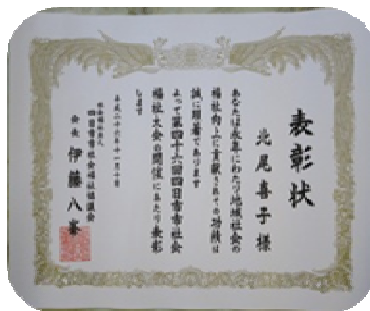 表彰状
北尾喜子様
あなたは永年にわたり地域社会の
福祉向上に貢献されその功績は
誠に顕著であります
よって第四十六回四日市市社会
福祉大会の開催にあたり表彰
します
平成二十六年十一月十日
社会福祉法人
四日市市社会福祉協議会
会長 伊藤八峯